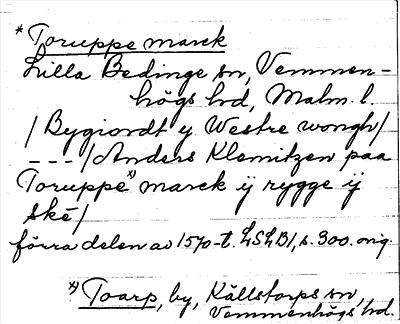 * Toruppe marck
Lilla Bedinge sn, Vemmen-
högs hd, Malm. l.
/ Bygiordt y Westre wongh/
- - - /Anders Klemitzen paa
Toruppe x) marck ij rygge ij
ské/
förra delen av 1570-t. LSLB1, s. 300. orig.
x) Toarp, by, Källstorps sn,
Vemmenhögs hd.